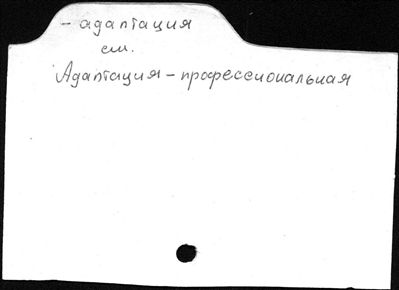 - адаптация
см.
Адаптация - профессиональная